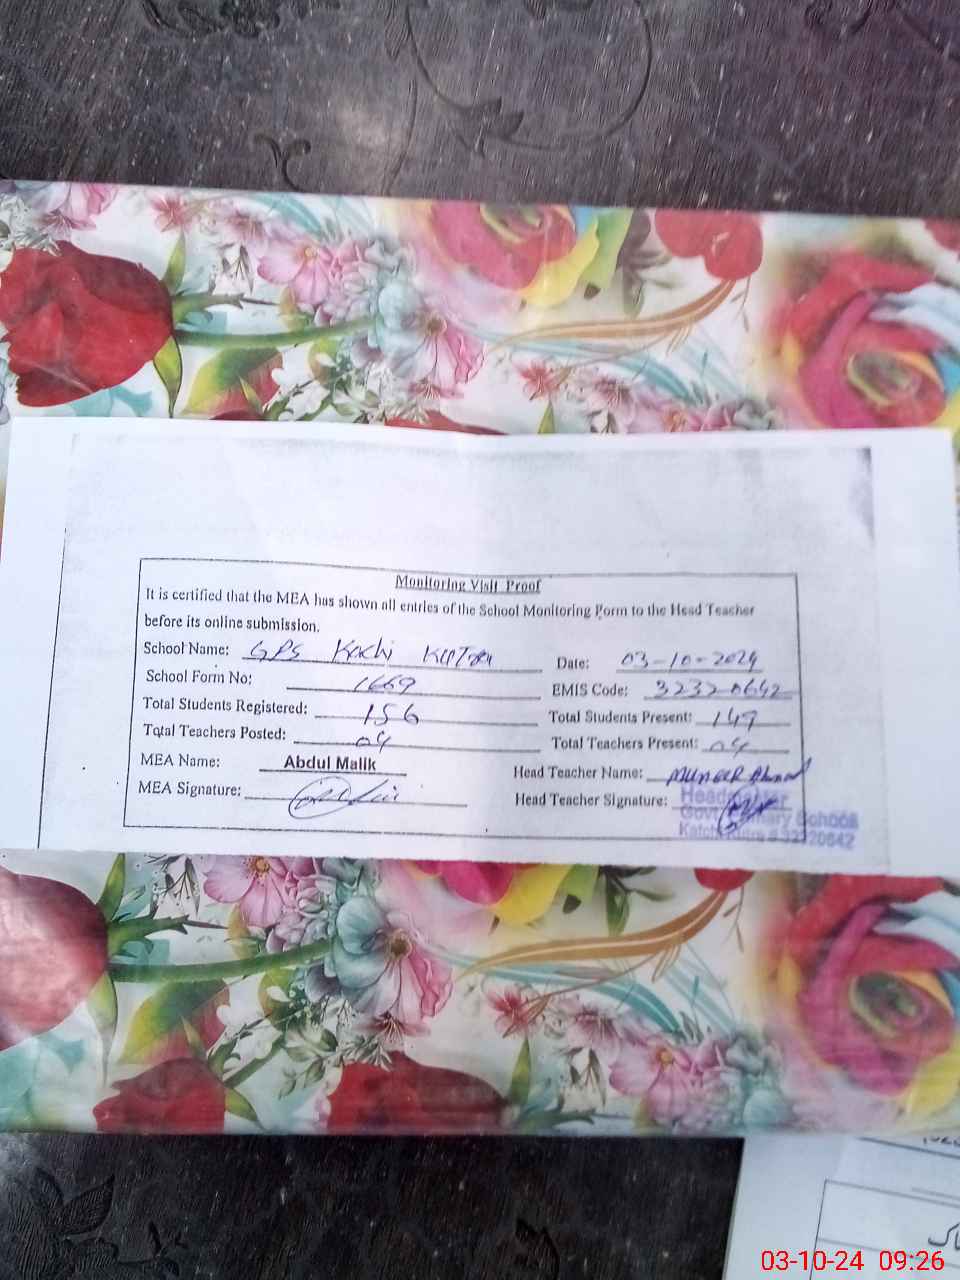 Monitoring Visit Proof
It is certified that the MEA has shown all entries of the School Monitoring Form to the Head Teacher
before its online submission.
School Name: GPS Kachi Kutra Date: 03-10-2024
School Form No: 1669 EMIS Code: 32320642
Total Students Registered: 156 Total Students Present: 149
Total Teachers Posted: 04 Total Teachers Present: 04
MEA Name: Abdul Malik Head Teacher Name: Muneer Ahmad
MEA Signature: Head Teacher Signature:
Headmaster
Govt. Primary School
Katchi Kutra # 32320642
03-10-24 09:26